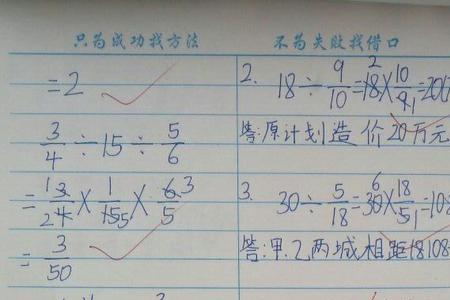 只为成功找方法
不为失败找借口
=2
3/4 ÷ 15 ÷ 5/6
= 3/4 × 1/15 × 6/5
= 3/50
2. 18 ÷ 9/10 = 18 × 10/9 = 20
答:原计划造价20万元
3. 30 ÷ 5/18 = 30 × 18/5 = 108
答:甲.乙两城相距108